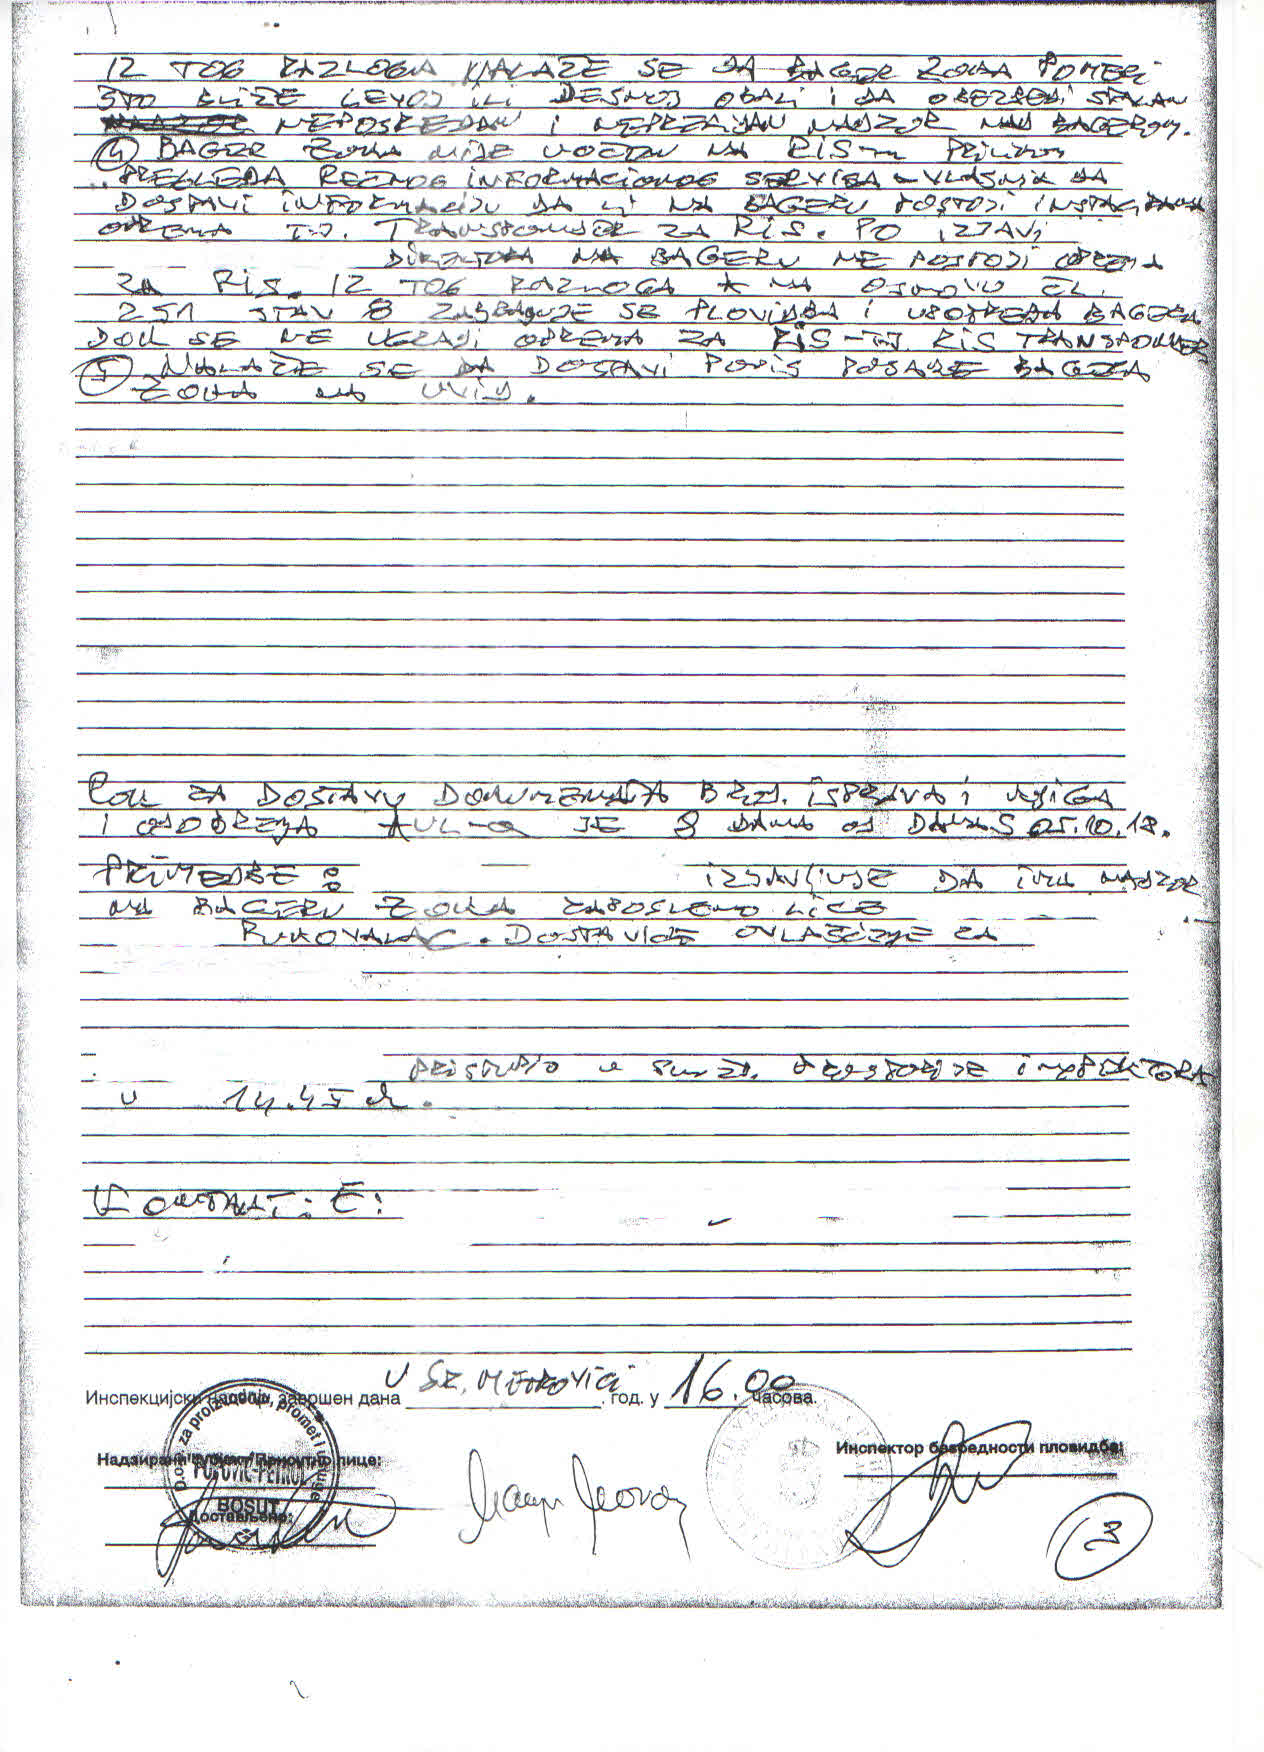 IZ TOG RAZLOGA NALAŽE SE DA BAGER ZOKA POMERI
ŠTO BLIŽE LEVOJ ILI DESNOJ OBALI I DA OBEZBEDI STALAN
NEPOSREDAN I NEPREKIDAN NADZOR NAD BAGEROM.
④ BAGER ZOKA NIJE UOČEN NA RIS-u PRILIKOM
PREGLEDA REČNOG INFORMACIONOG SERVISA - VLASNIK DA
DOSTAVI INFORMACIJU DA LI NA BAGERU POSTOJI
OPREMA TJ. TRANSPONDER ZA RIS. PO IZJAVI
DIREKTORA NA BAGERU NE POSTOJI OPREMA
ZA RIS. IZ TOG RAZLOGA NA OSNOVU ČL.
251 STAV 8 ZABRANJUJE SE PLOVIDBA I UPOTREBA BAGERA
DOK SE NE UGRADI OPREMA ZA RIS - TJ. RIS TRANSPONDER
⑤ NALAŽE SE DA DOSTAVI POPIS POSADE BAGERA
ZOKA NA UVID.
ROK ZA DOSTAVU DOKUMENATA BROD. ISPRAVA I KNJIGA
I ODOBRENJA JE 8 DANA OD DANAS 05.10.18.
PRIMEDBE: IZJAVLJUJE DA IMA NADZOR
NA BAGERU ZOKA ZAPOSLENO LICE
RUKOVALAC. DOSTAVIĆE OVLAŠĆENJE ZA
PRISTUPIO U INSPEKTORA
U 14.45 h.
KONTAKT:
U SR. MITROVICI 16.00
Инспекцијски надзор завршен дана год. у часова.
Надзирани субјект/Присутно лице: Инспектор безбедности пловидбе:
D.o.o. za proizvodnju, promet i usluge
POPOVIĆ-PETROL
BOSUT
Достављено:
3